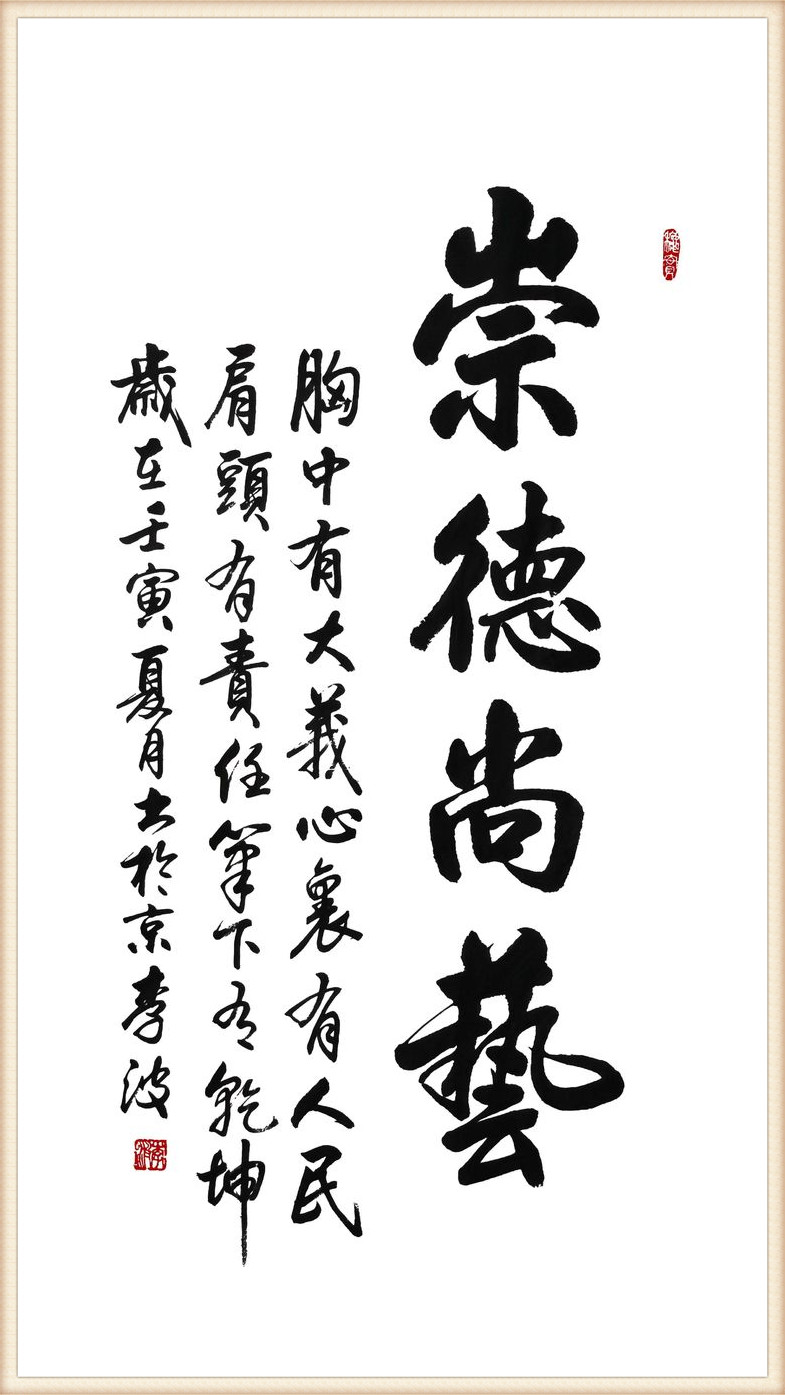 崇德尚藝
胸中有大義心裏有人民
肩頭有責任筆下有乾坤
歲在壬寅夏月书於京李波